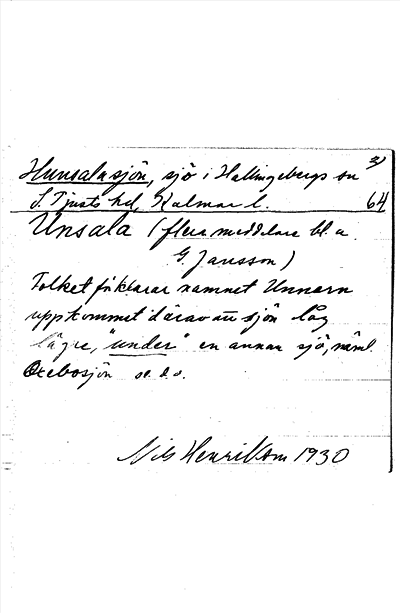 Hunsalasjön, sjö i Hallingebergs sn 2)
S. Tjusts hd, Kalmar l. 64
Unsala (flera meddelare bl.a.
G. Jansson)
Folket förklarar namnet Unnarn
uppkommet därav att sjön låg
lägre, "under" en annan sjö, näml.
Oxebosjön se d.o.
Nils Henrikson 1930